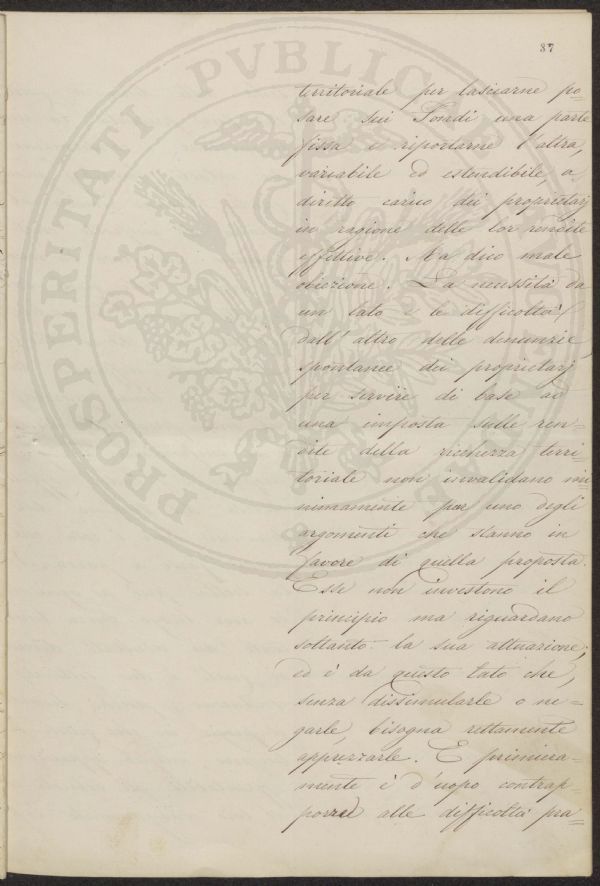 87
territoriale per lasciarne po=
sare sui fondi una parte
fissa e riportarne l'altra,
variabile ed estendibile, a
diritto carico dei proprietarj
in ragione delle lor rendite
effettive. Ma dico male
obiezione. La necessità da
un lato e le difficoltà
dall'altro delle denunzie
spontanee dei proprietarj
per servire di base ad
una imposta sulle ren=
dite della ricchezza terri=
toriale non invalidano mi
nimamente pur uno degli
argomenti che stanno in
favore di quella proposta.
Esse non investono il
principio ma riguardano
soltanto la sua attuazione;
ed è da questo lato che,
senza dissimularle o ne=
garle, bisogna rettamente
apprezzarle. E primiera=
mente è d'uopo contrap=
porre alle difficoltà pra=
PROSPERITATI PVBLICAE